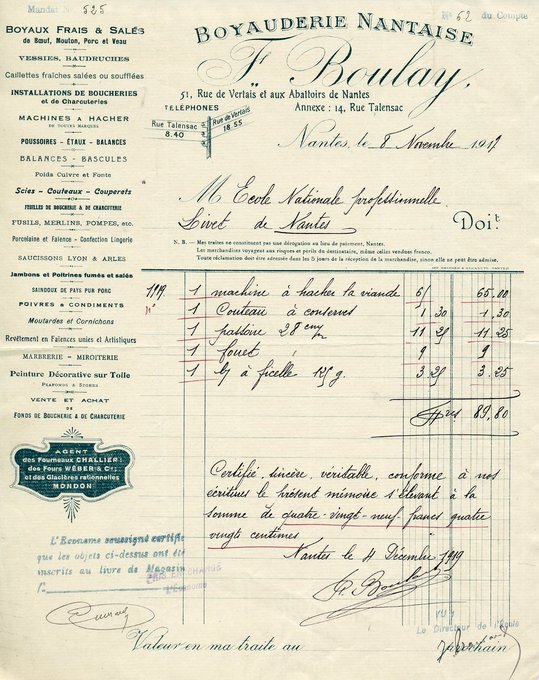 Mandat N° 525
N° 52 du Compte
BOYAUDERIE NANTAISE
Fs Boulay,
51, Rue de Vertais et aux Abattoirs de Nantes
Annexe : 14, Rue Talensac
TÉLÉPHONES
Rue Talensac 8.40
Rue de Vertais 18.55
Nantes, le 8 Novembre 1919
M Ecole Nationale professionnelle
Livet de Nantes
Doit
N. B. – Mes traites ne constituent pas une dérogation au lieu de payement, Nantes.
Les marchandises voyagent aux risques et périls du destinataire, même celles vendues franco.
Toute réclamation doit être adressée dans les 5 jours de la réception de la marchandise, sinon elle ne peut être admise.
BOYAUX FRAIS & SALÉS
de Bœuf, Mouton, Porc et Veau
VESSIES, BAUDRUCHES
Caillettes fraîches salées ou soufflées
INSTALLATIONS DE BOUCHERIES
et de Charcuteries
MACHINES A HACHER
DE TOUTES MARQUES
POUSSOIRS - ÉTAUX - BALANCES
BALANCES - BASCULES
Poids Cuivre et Fonte
Scies - Couteaux - Couperets
FEUILLES DE BOUCHERIE & DE CHARCUTERIE
FUSILS, MERLINS, POMPES, etc.
Porcelaine et Faïence - Confection Lingerie
SAUCISSONS LYON & ARLES
Jambons et Poitrines fumés et salés
SAINDOUX DE PAYS PUR PORC
POIVRES & CONDIMENTS
Moutardes et Cornichons
Revêtement en Faïences unies et Artistiques
MARBRERIE - MIROITERIE
Peinture Décorative sur Toile
PLAFONDS & STORES
VENTE ET ACHAT
DE
FONDS DE BOUCHERIE & DE CHARCUTERIE
AGENT
des Fourneaux CHALLIER;
des Fours WÉBER & Cie;
et des Glacières rationnelles
MONDON
1919 1 machine à hacher la viande 65.00
1 Couteau à conserves 1 30 1.30
1 passoire 28 cm 11 25 11.25
1 fouet 9 9
1 à ficelle 125 g. 3 25 3.25
89,80
Certifié, sincère, véritable, conforme à nos
écritures le présent mémoire s'élevant à la
somme de quatre-vingt-neuf francs quatre
vingts centimes
Nantes le 4 Décembre 1919
F. Boulay
L'Econome soussigné certifie
que les objets ci-dessus ont été
inscrits au livre de Magasin
f°
PRIS EN CHARGE
L'Econome
VU :
Le Directeur de l'Ecole
Valeur en ma traite au prochain